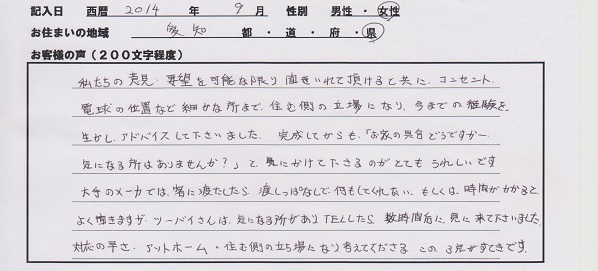 記入日 西暦 2014 年 9 月 性別 男性 ・ 女性
お住まいの地域 愛知 都 ・ 道 ・ 府 ・ 県
お客様の声(200文字程度)
私たちの意見・要望を可能な限り聞きいれて頂けると共に、コンセント、
電球の位置など細かな所まで、住む側の立場になり、今までの経験を
生かし、アドバイスして下さいました。完成してからも、「お家の具合どうですか〜
気になる所はありませんか?」と、気にかけて下さるのがとてもうれしいです
大手のメーカーでは、客に渡したら、渡しっぱなしで、何もしてくれない、もしくは、時間がかかると
よく聞きますが、ツーバイさんは、気になる所がありTELしたら、数時間后に、見に来て下さいました。
対応の早さ・アットホーム・住む側の立ち場になり考えてくださる この3点がすてきです。